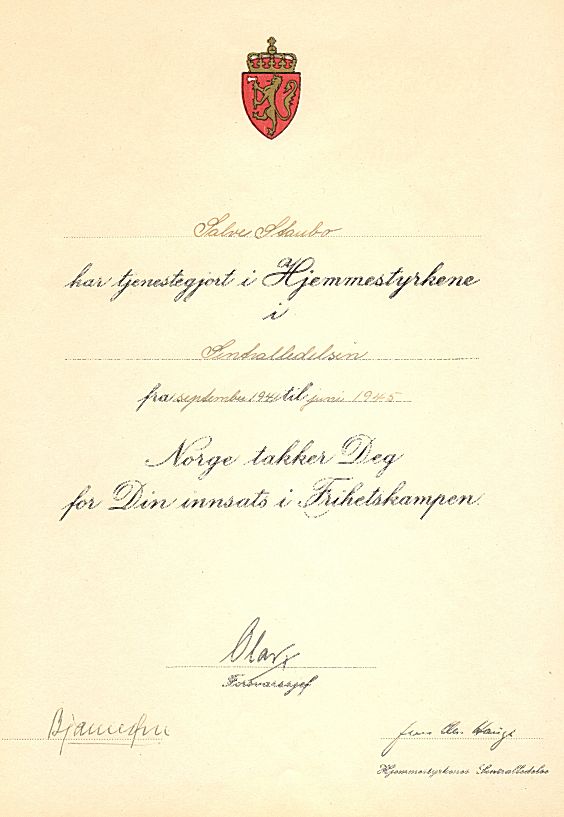 Salve Staubo
har tjenestegjort i Hjemmestyrkene
i
Sentralledelsen
fra september 1941 til juni 1945
Norge takker Deg
for Din innsats i Frihetskampen.
Olav
Forsvarssjef
Jens Chr. Hauge
Hjemmestyrkenes Sentralledelse